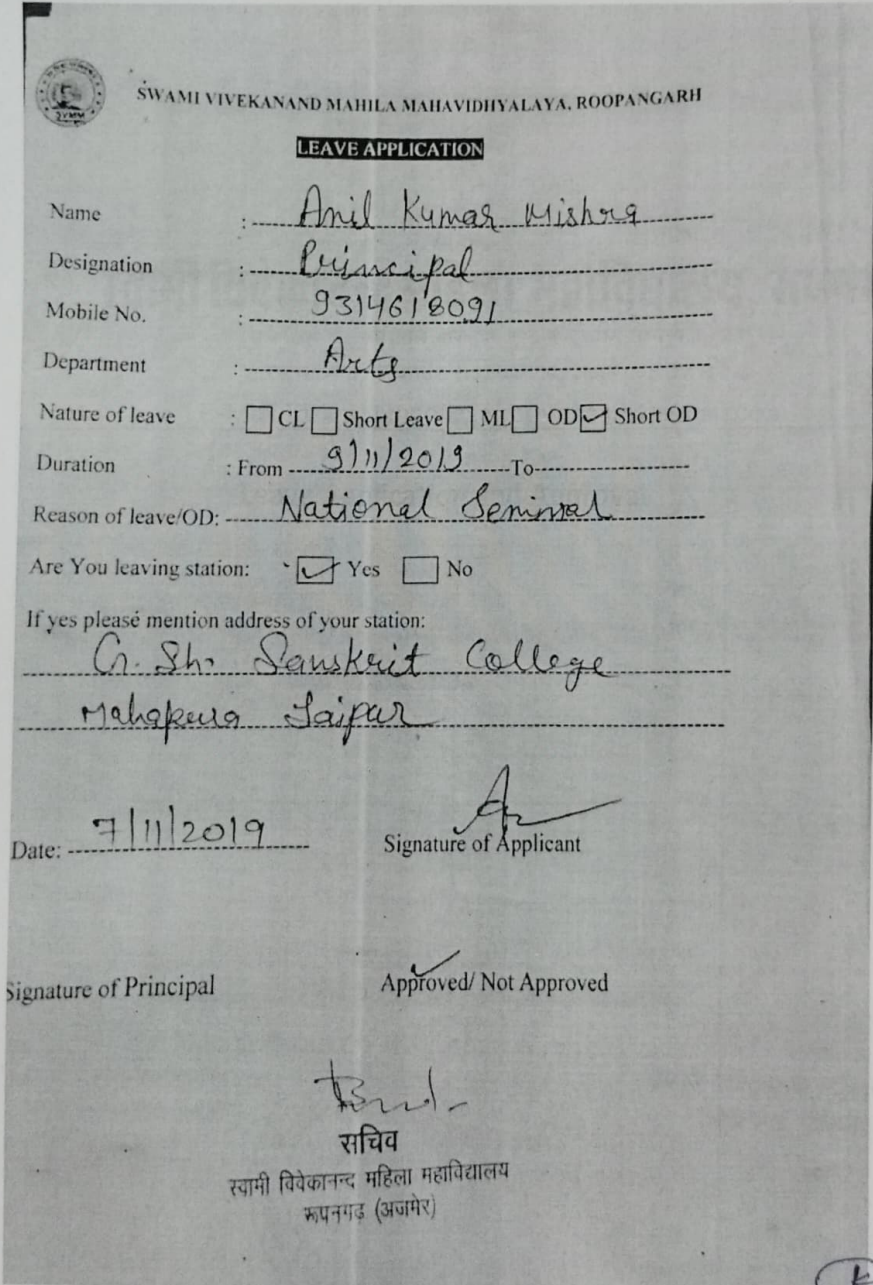 SVMM
SWAMI VIVEKANAND MAHILA MAHAVIDHYALAYA, ROOPANGARH
LEAVE APPLICATION
Name : Anil Kumar Mishra
Designation : Principal
Mobile No. : 9314618091
Department : Arts
Nature of leave : CL Short Leave ML OD Short OD
Duration : From 9/11/2019 To
Reason of leave/OD: National Seminar
Are You leaving station: Yes No
If yes please mention address of your station:
Sh. Sanskrit College
Mahapura Jaipur
Date: 7/11/2019 Signature of Applicant
Signature of Principal Approved/ Not Approved
सचिव
स्वामी विवेकानन्द महिला महाविद्यालय
रूपनगढ़ (अजमेर)